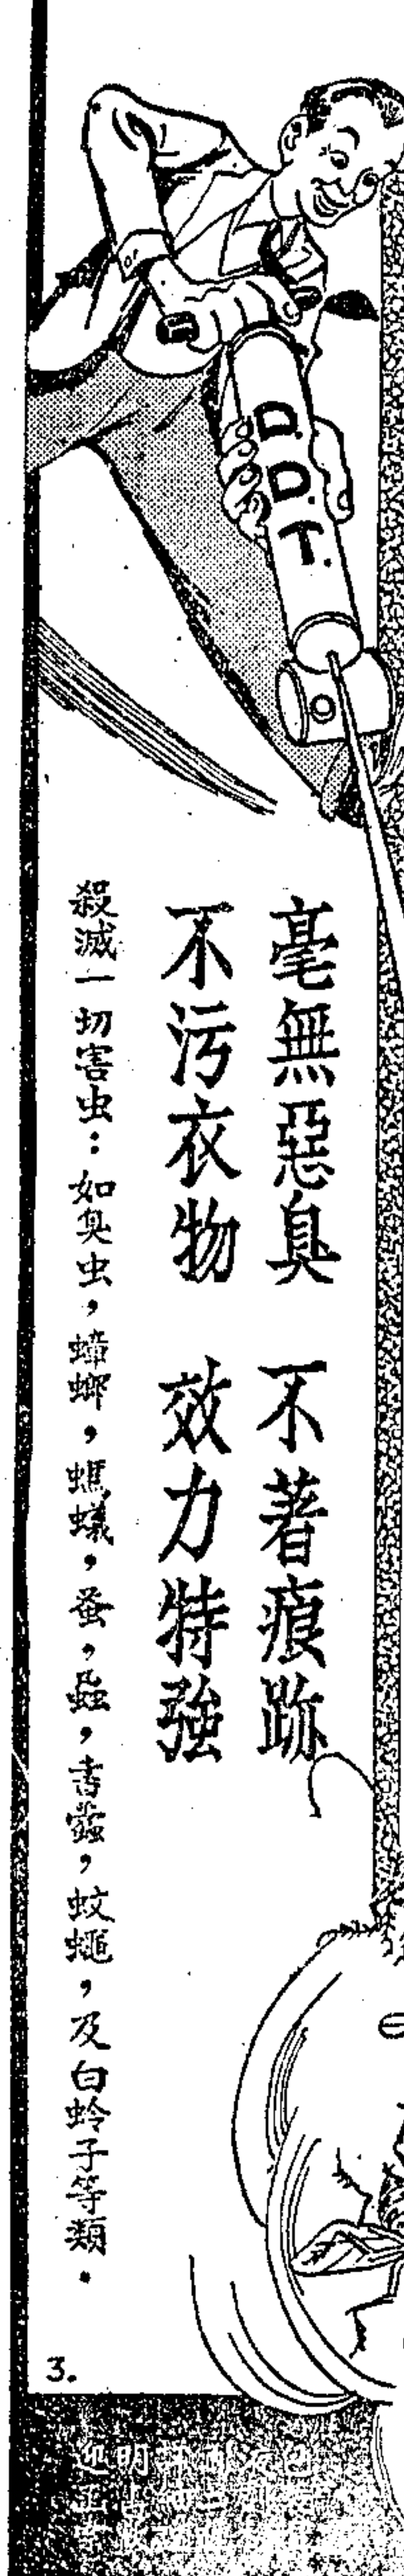 D.D.T.
毫無惡臭 不著痕跡
不污衣物 效力特強
殺滅一切害虫：如臭虫，蟑螂，螞蟻，蚤，蝨，書蠹，蚊蠅，及白蛉子等類．
3.